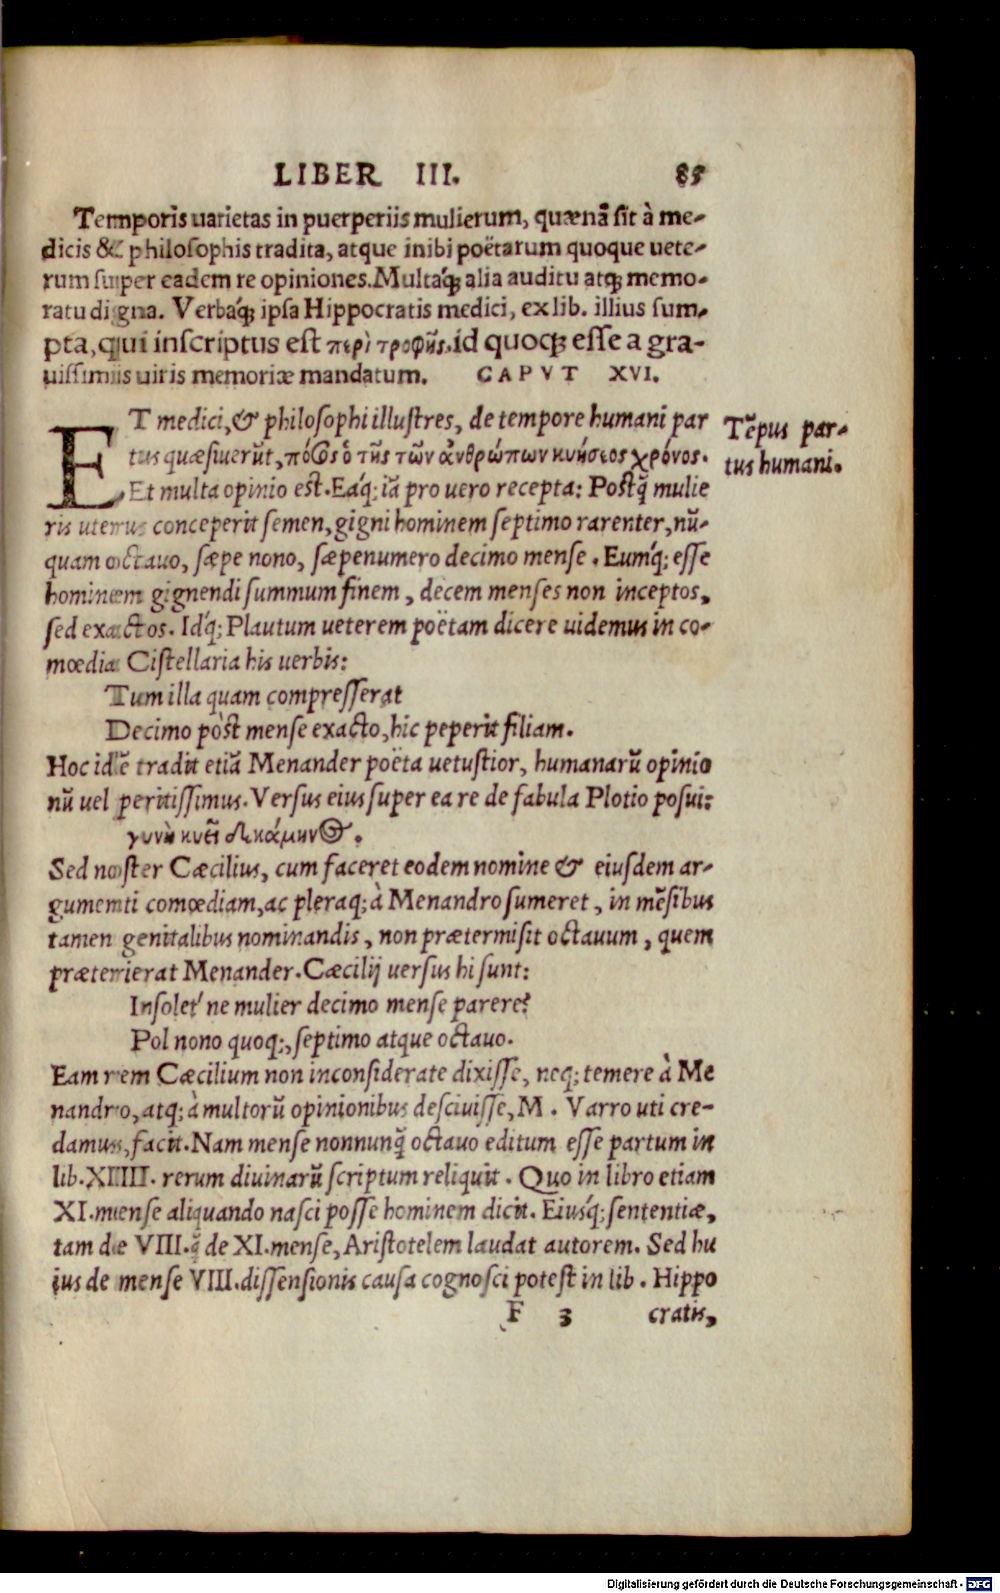 LIBER III. 85
Temporis uarietas in puerperiis mulierum, quænã sit à me-
dicis & philosophis tradita, atque inibi poëtarum quoque uete-
rum super eadem re opiniones. Multáq; alia auditu atq; memo-
ratu digna. Verbáq; ipsa Hippocratis medici, ex lib. illius sum-
pta, qui inscriptus est περὶ τροφῆς. id quoq; esse a gra-
uissimis uiris memoriæ mandatum. CAPVT XVI.
ET medici, & philosophi illustres, de tempore humani par
tus quæsiuerũt, πόσος ὁ τῆς τῶν ἀνθρώπων κυήσεως χρόνος.
Et multa opinio est. Eáq; iã pro uero recepta: Postq̃ mulie
ris uterus conceperit semen, gigni hominem septimo rarenter, nũ-
quam octauo, sæpe nono, sæpenumero decimo mense. Eumq́; esse
hominem gignendi summum finem, decem menses non inceptos,
sed exactos. Idq́; Plautum ueterem poëtam dicere uidemus in co-
mœdia Cistellaria his uerbis:
Tum illa quam compresserat
Decimo pòst mense exacto, hic peperit filiam.
Hoc idẽ tradit etiã Menander poëta uetustior, humanarũ opinio
nũ uel peritissimus. Versus eius super ea re de fabula Plotio posui:
γυνὴ κυεῖ δεκάμηνος.
Sed noster Cæcilius, cum faceret eodem nomine & eiusdem ar-
gumenti comœdiam, ac pleraq; à Menandro sumeret, in mẽsibus
tamen genitalibus nominandis, non prætermisit octauum, quem
præterierat Menander. Cæcilij uersus hi sunt:
Insolet' ne mulier decimo mense parere?
Pol nono quoq;, septimo atque octauo.
Eam rem Cæcilium non inconsiderate dixisse, neq; temere à Me
nandro, atq; à multorũ opinionibus desciuisse, M. Varro uti cre-
damus, facit. Nam mense nonnunq̃ octauo editum esse partum in
lib. XIIII. rerum diuinarũ scriptum reliquit. Quo in libro etiam
XI. mense aliquando nasci posse hominem dicit. Eiusq́; sententiæ,
tam de VIII. q̃ de XI. mense, Aristotelem laudat autorem. Sed hu
ius de mense VIII. dissensionis causa cognosci potest in lib. Hippo
F 3 cratis,
Tẽpus par-
tus humani.
Digitalisierung gefördert durch die Deutsche Forschungsgemeinschaft - DFG